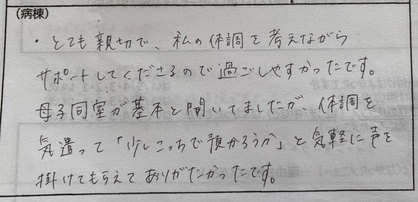 (病棟)
・とても親切で、私の体調を考えながら
サポートしてくださるので過ごしやすかったです。
母子同室が基本と聞いてましたが、体調を
気遣って「少しこっちで預かろうか」と気軽に声を
掛けてもらえてありがたかったです。